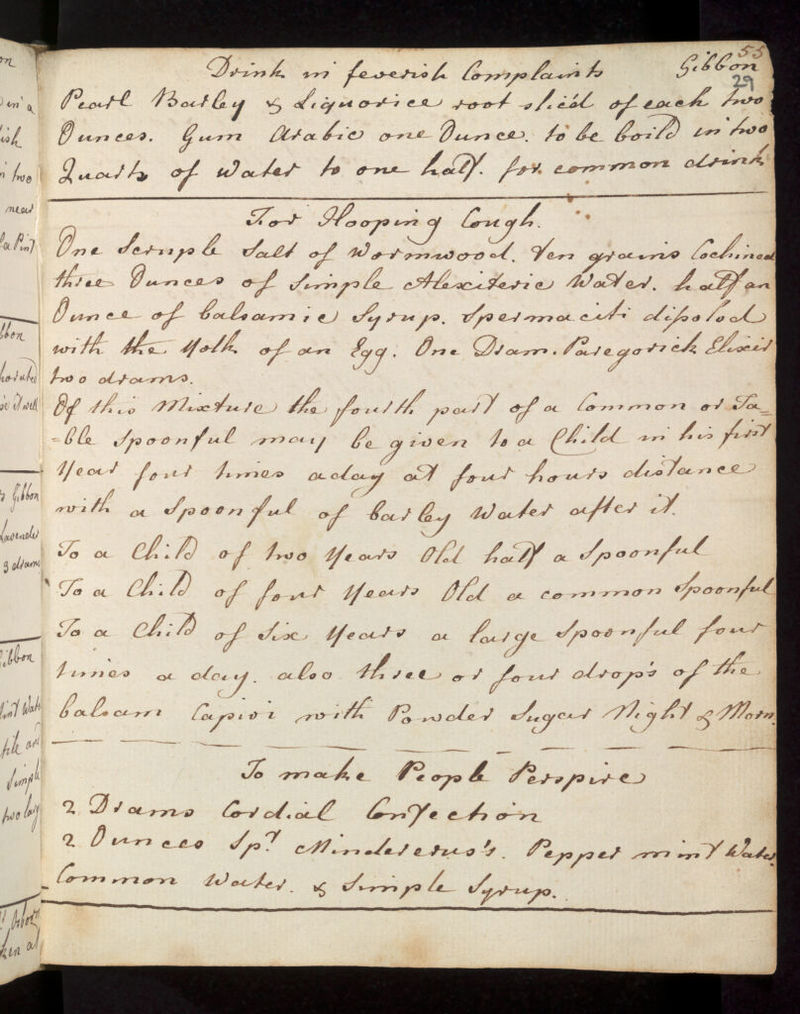 55
Drink in feverish Complaints Gibbon
29
Pearl Barley & Liquorice root slic'd of each two
Ounces. Gum Arabic one Ounce. to be boild in two
Quarts of Water to one half. for common drink
For Hooping Cough.
One Scruple Salt of Wormwood. ten grains Cochineal
three Ounces of Simple Alexiteric Water. half an
Ounce of balsamic Syrup. Spermaciti dissolod
with the Yolk of an Egg. One Dram. Paregorick Elixir
two drams.
Of this Mixture the fourth part of a Common or Ta=
=ble Spoonful may be given to a Child in his first
Year four times aday at four hours distance
with a Spoonful of barley Water after it.
To a Child of two Years Old half a Spoonful
To a Child of four Years Old a common Spoonful
To a Child of Six Years a large Spoonful four
times a day. also three or four drop's of the
balsam Capivi with Powder Sugar Night & Morn.
To make People Perspire
2 Drams Cordial Confection
2 Ounces Spt. Mindererus's. Pepper mint Water
Common Water. & Simple Syrup.